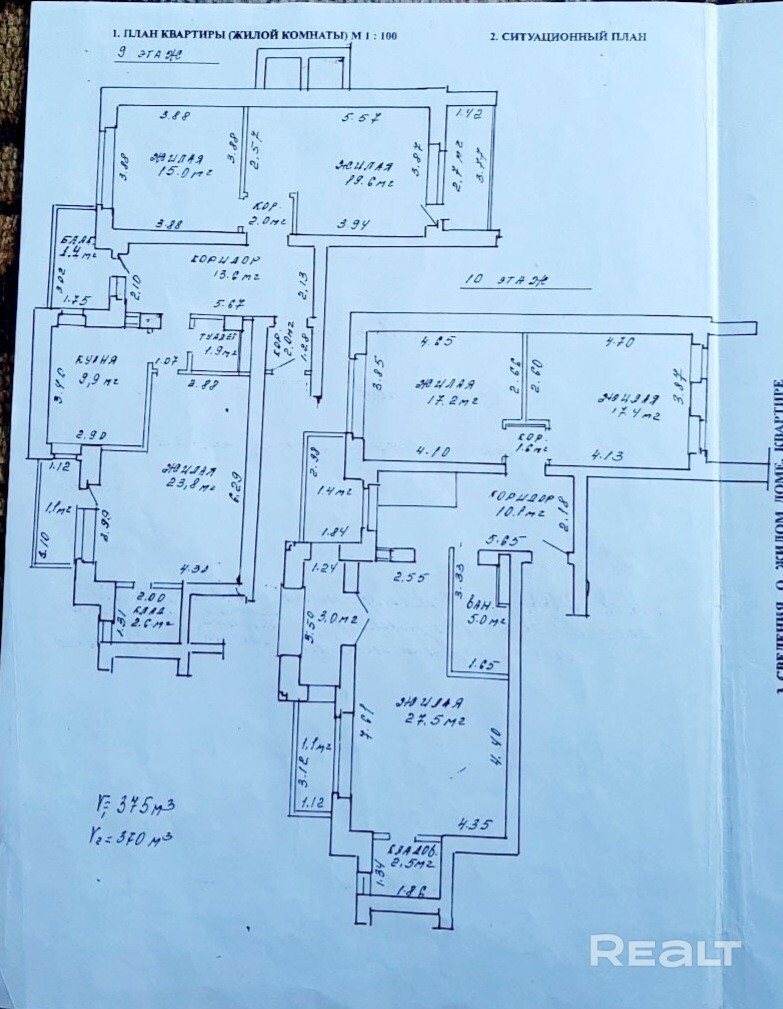 1. ПЛАН КВАРТИРЫ (ЖИЛОЙ КОМНАТЫ) М 1 : 100
2. СИТУАЦИОННЫЙ ПЛАН
9 ЭТАЖ
3.88
5.57
1.42
3.88
ЖИЛАЯ
15.0 м²
3.88
2.57
ЖИЛАЯ
19.6 м²
3.87
2,7 м²
3.77
3.88
КОР.
2.0 м²
3.94
БАЛК.
м²
3.02
1.75
2.10
КОРИДОР
13.6 м²
5.67
2.13
10 ЭТАЖ
КУХНЯ
9,9 м²
3.40
2.90
1.07
ТУАЛЕТ
1.9 м²
КОР.
2.0 м²
1.28
3.88
ЖИЛАЯ
23,8 м²
6.29
1.12
1,1 м²
3.10
4.38
2.00
КЛАД.
2.6 м²
1.31
4.65
4.70
3.85
ЖИЛАЯ
17.2 м²
2.66
2.60
ЖИЛАЯ
17.4 м²
3.87
4.10
КОР.
1.6 м²
4.13
2.98
1.4 м²
1.84
КОРИДОР
10.1 м²
5.65
2.18
1.24
3,0 м²
3.50
2.55
3.33
ВАН.
5.0 м²
1.65
ЖИЛАЯ
27.5 м²
7.61
4.40
1,1 м²
3.12
1.12
4.35
КЛАДОВ.
2,5 м²
1.34
1.86
V₁ = 375 м³
V₂ = 370 м³
3. СВЕДЕНИЯ О ЖИЛОМ ДОМЕ, КВАРТИРЕ
REALT